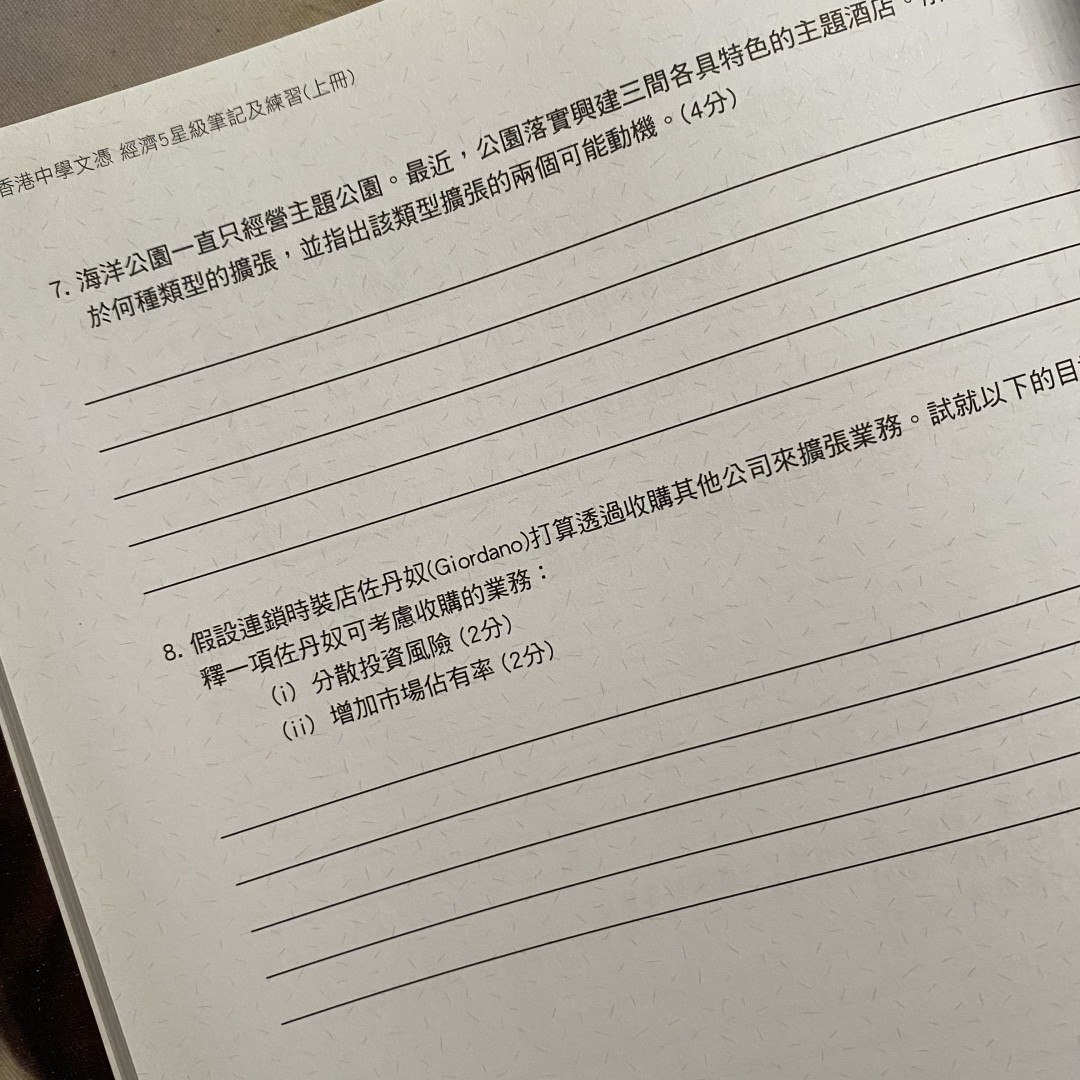 香港中學文憑 經濟5星級筆記及練習(上冊)
7. 海洋公園一直只經營主題公園。最近，公園落實興建三間各具特色的主題酒店。
於何種類型的擴張，並指出該類型擴張的兩個可能動機。(4分)
8. 假設連鎖時裝店佐丹奴(Giordano)打算透過收購其他公司來擴張業務。試就以下的目
釋一項佐丹奴可考慮收購的業務：
(i) 分散投資風險 (2分)
(ii) 增加市場佔有率 (2分)